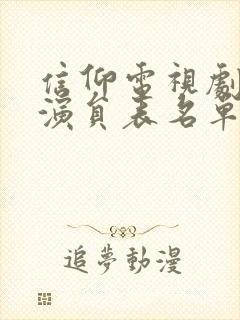 信仰電視劇
演員表名單
追夢動漫